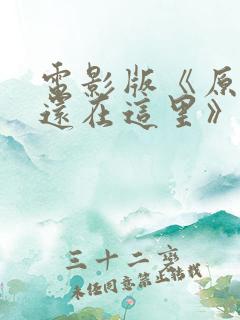 電影版《原
還在這里》
三十二變
未经同意禁止转载